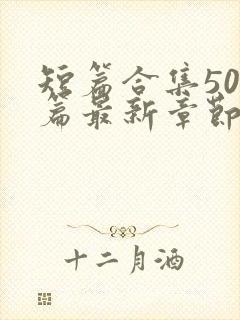 短篇合集50
篇最新章節
十二月酒